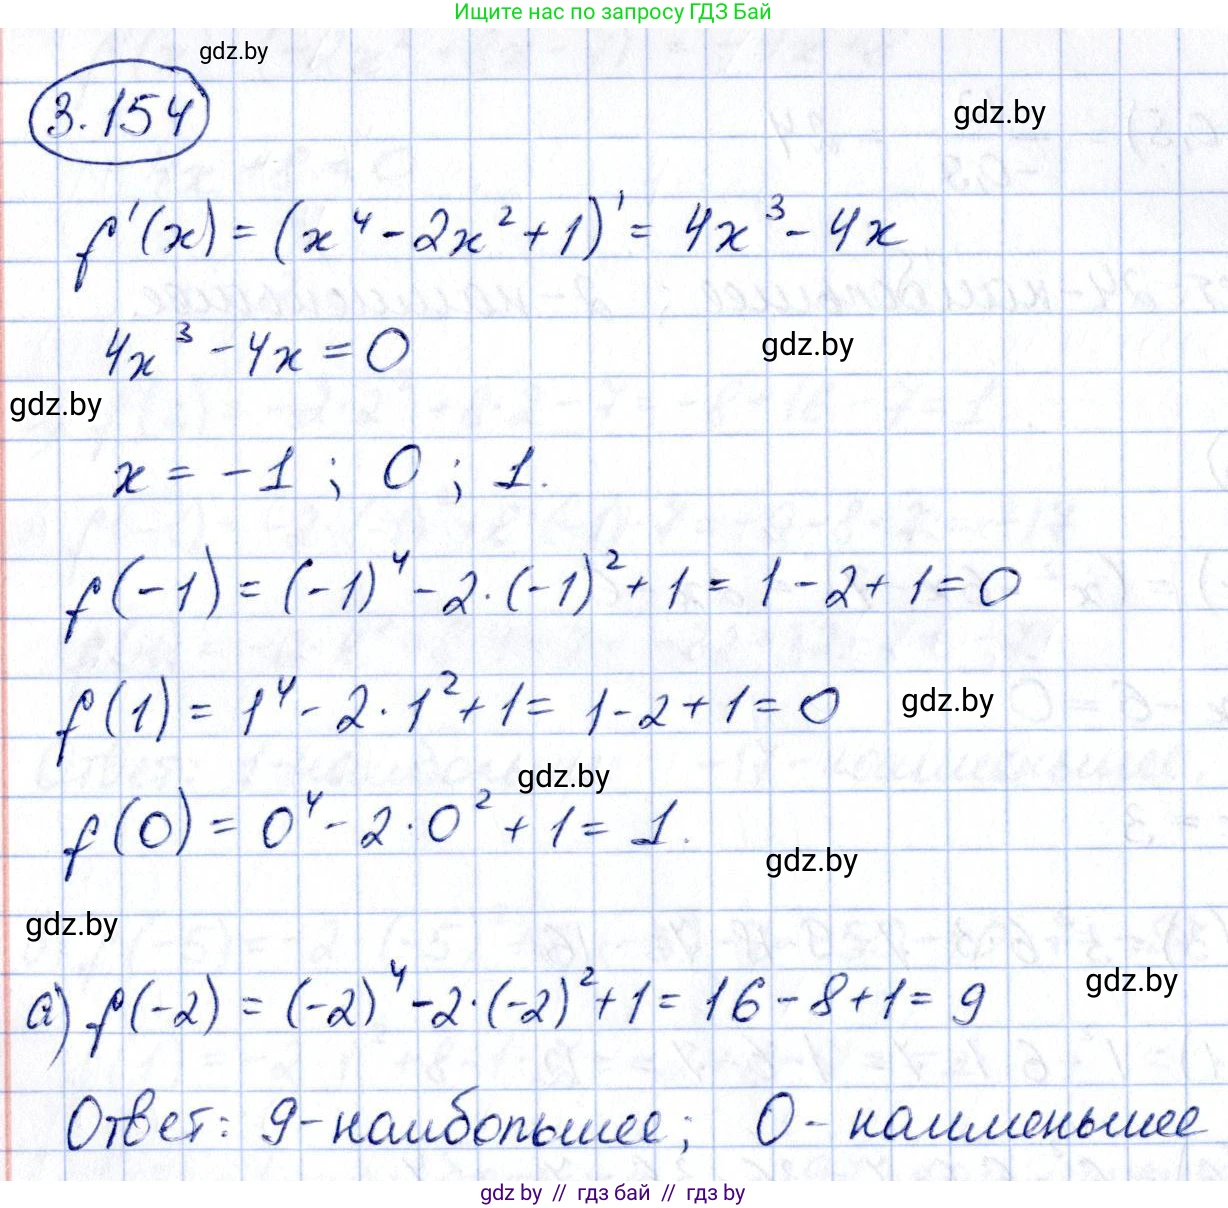 Ищите нас по запросу ГДЗ Бай
gdz.by
3.154
gdz.by
f'(x) = (x⁴ - 2x² + 1)' = 4x³ - 4x
4x³ - 4x = 0
gdz.by
gdz.by
x = -1 ; 0 ; 1.
f(-1) = (-1)⁴ - 2·(-1)² + 1 = 1 - 2 + 1 = 0
f(1) = 1⁴ - 2·1² + 1 = 1 - 2 + 1 = 0
gdz.by
gdz.by
f(0) = 0⁴ - 2·0² + 1 = 1.
gdz.by
gdz.by
а) f(-2) = (-2)⁴ - 2·(-2)² + 1 = 16 - 8 + 1 = 9
gdz.by
Ответ: 9 - наибольшее; 0 - наименьшее
gdz.by // гдз бай // гдз by